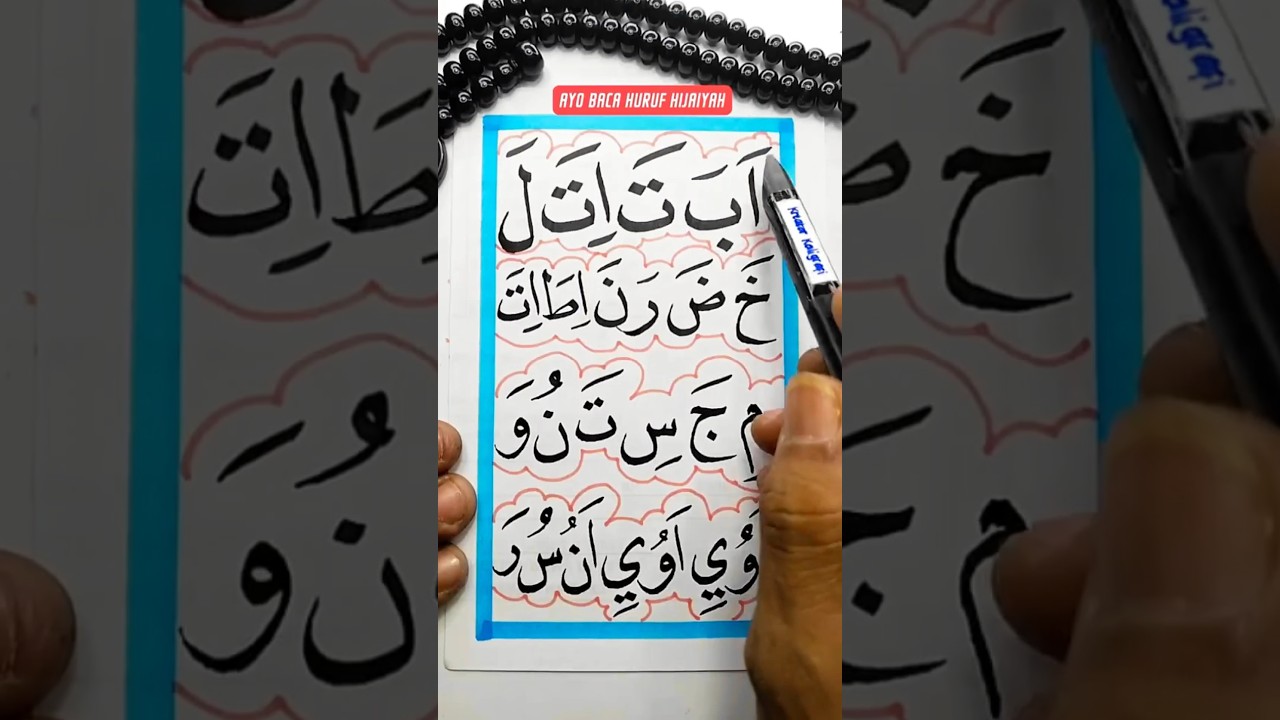 AYO BACA HURUF HIJAIYAH
اَ بَ تَ اِ تَ لَ
خَ ضَ رَ نَ اِ طَ اِ تَ
مِ جَ سِ تَ نُ وَ
وُ يِ اَ وُ يِ اَ نُ سُ رَ